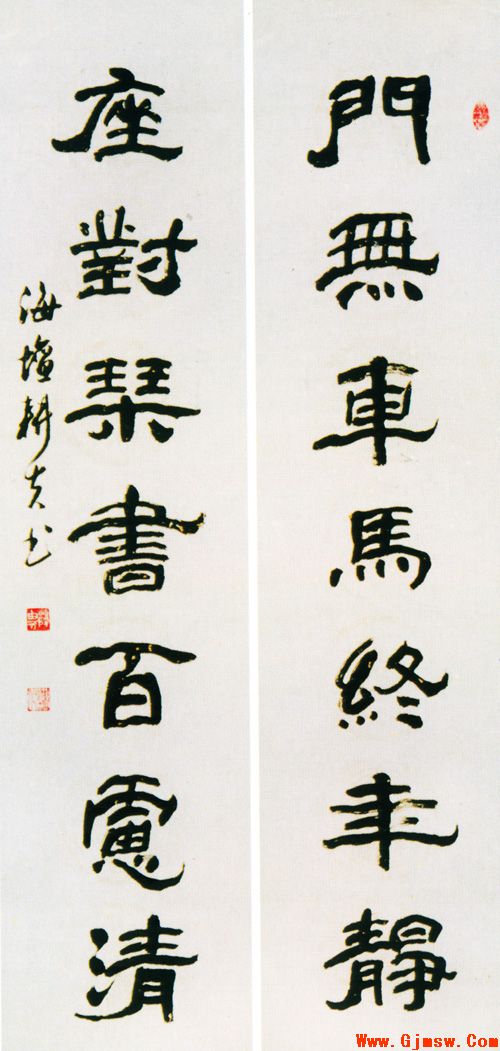 門無車馬終年靜
座對琹書百慮清
海壇耕夫书
Www.Gjmsw.Com